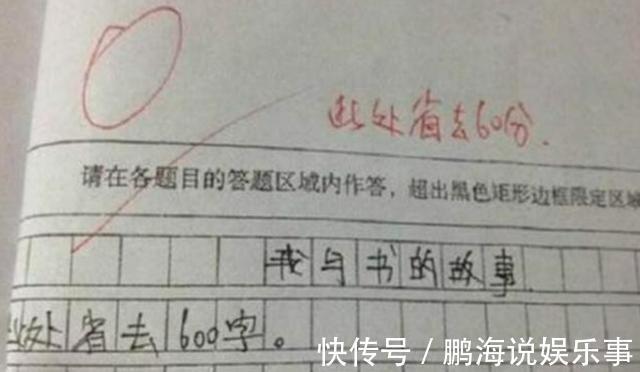 此处省去60分.
请在各题目的答题区域内作答，超出黑色矩形边框限定区域
我与书的故事
此处省去600字。
快传号 / 鹏海说娱乐事